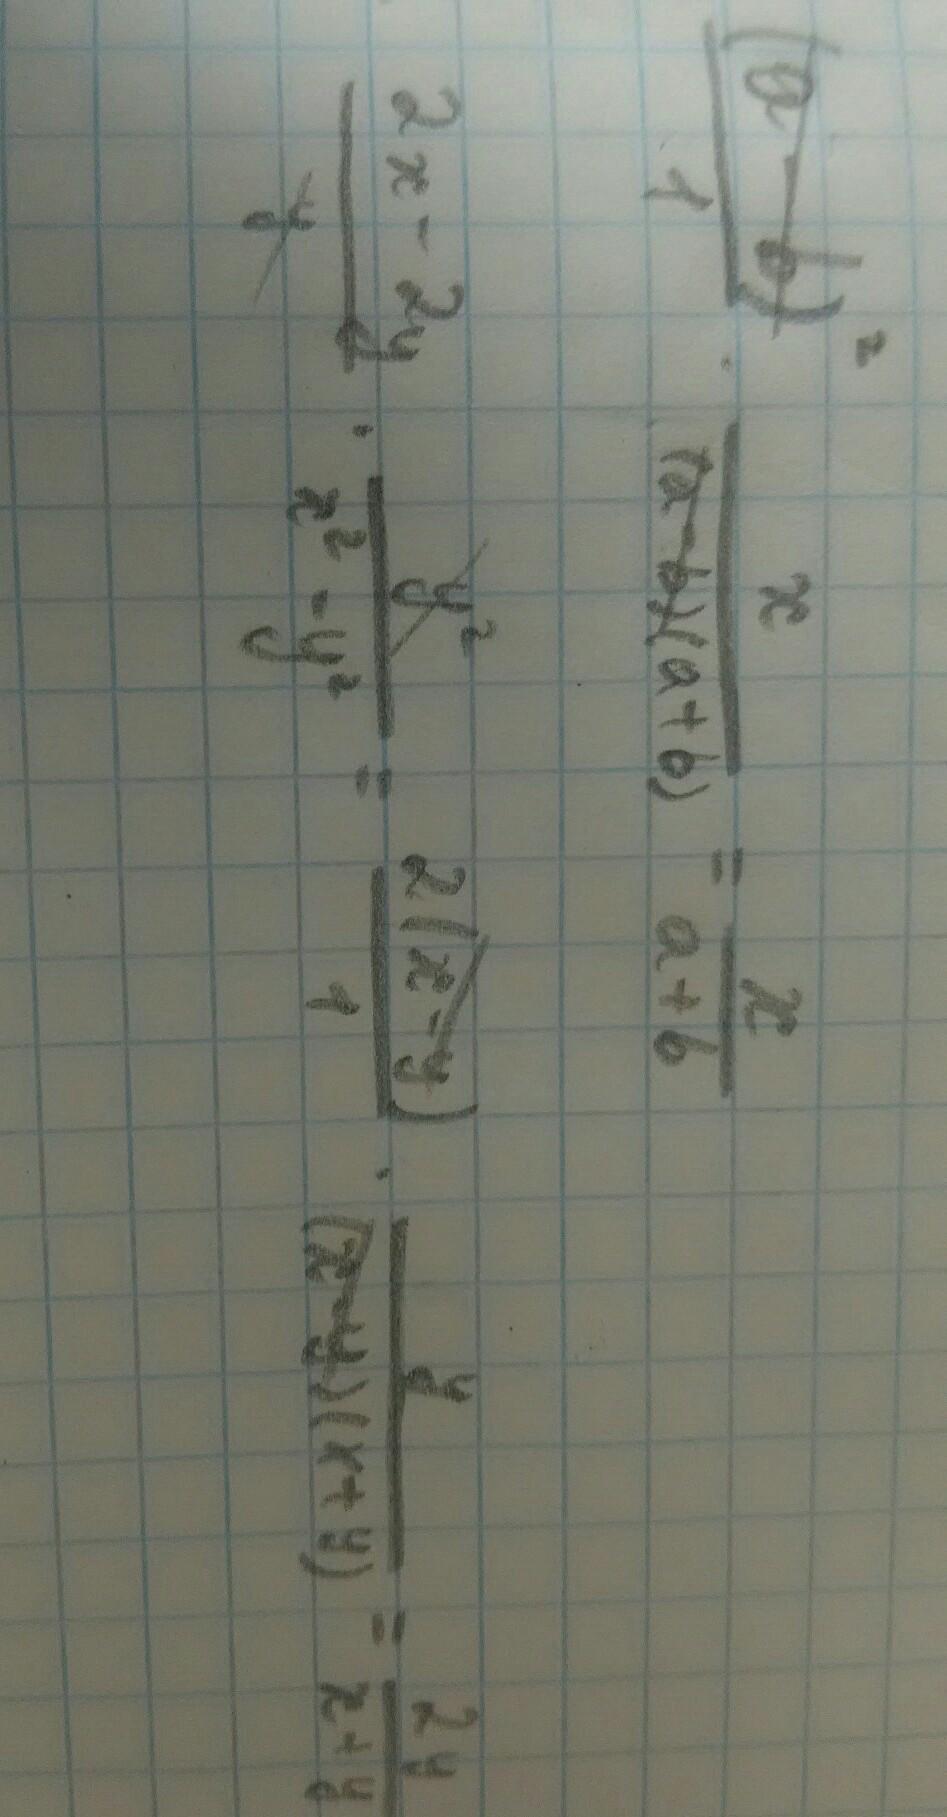 (a-b)²/1 · x/((a-b)(a+b)) = x/(a+b)
(2x-2y)/y · y²/(x²-y²) = 2(x-y)/1 · y/((x-y)(x+y)) = 2y/(x+y)